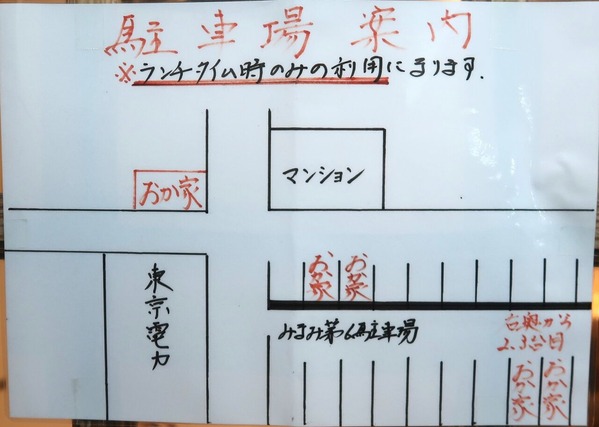 駐車場案内
※ランチタイム時のみの利用になります.
おか家
マンション
おか家
おか家
東京電力
みまみ第6駐車場
右奥から
2.3台目
おか家
おか家